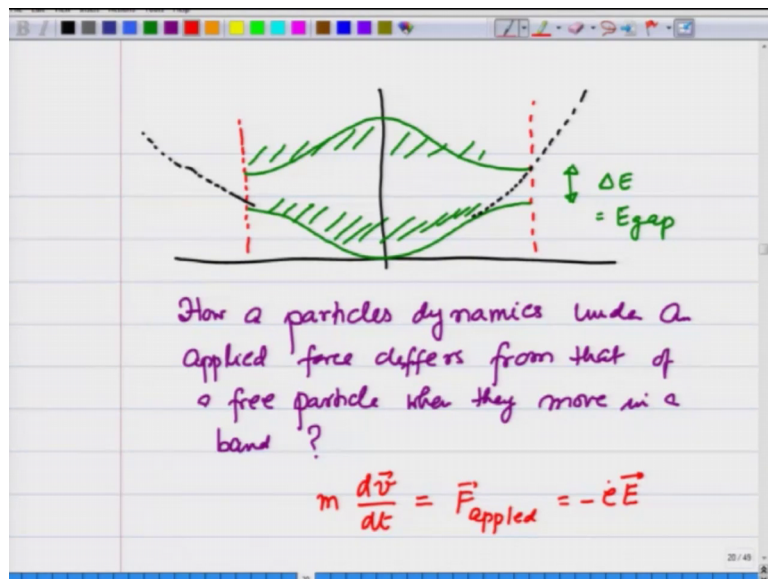 ΔE
= Egap
How a particles dynamics under a
applied force differs from that of
a free particle when they move in a
band ?
m dv⃗/dt = F⃗applied = -eE⃗
20 / 45